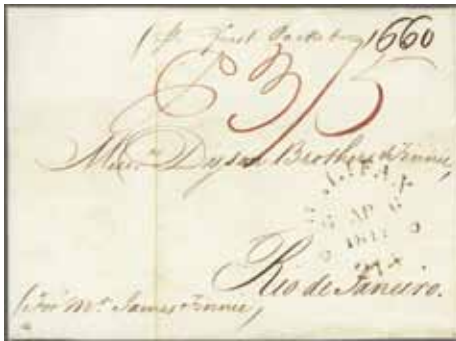 First Packet 1660
3/5
Messrs Dyson Brothers & Finnie,
HALIFAX
AP 6
Rio de Janeiro.
(For Mr James Finnie)